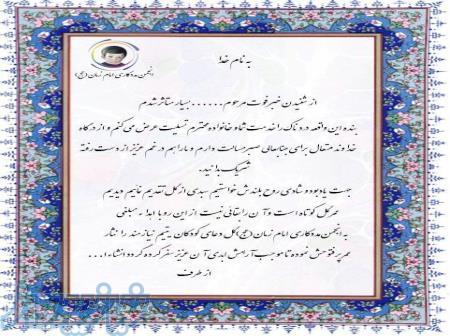 به نام خدا
انجمن مددکاری امام زمان (عج)
از شنیدن خبر فوت مرحوم ...... بسیار متاثر شدم
بنده این واقعه دردناک را خدمت شما و خانواده محترم تسلیت عرض می کنم و از درگاه
خداوند متعال برای جنابعالی صبر مسالت دارم و ما را هم در غم عزیز از دست رفته
شریک بدانید.
جهت یادبود و شادی روح بلندش خواستیم سبدی از گل تقدیم نماییم دیدیم
عمر گل کوتاه است و آن را بقائی نیست از این رو با اهداء مبلغی
به انجمن مددکاری امام زمان (عج) گل دعای کودکان یتیم نیازمند را نثار
مرحوم نموده تا موجب آرامش ابدی آن عزیز سفر کرده گردد انشاء ا...
از طرف